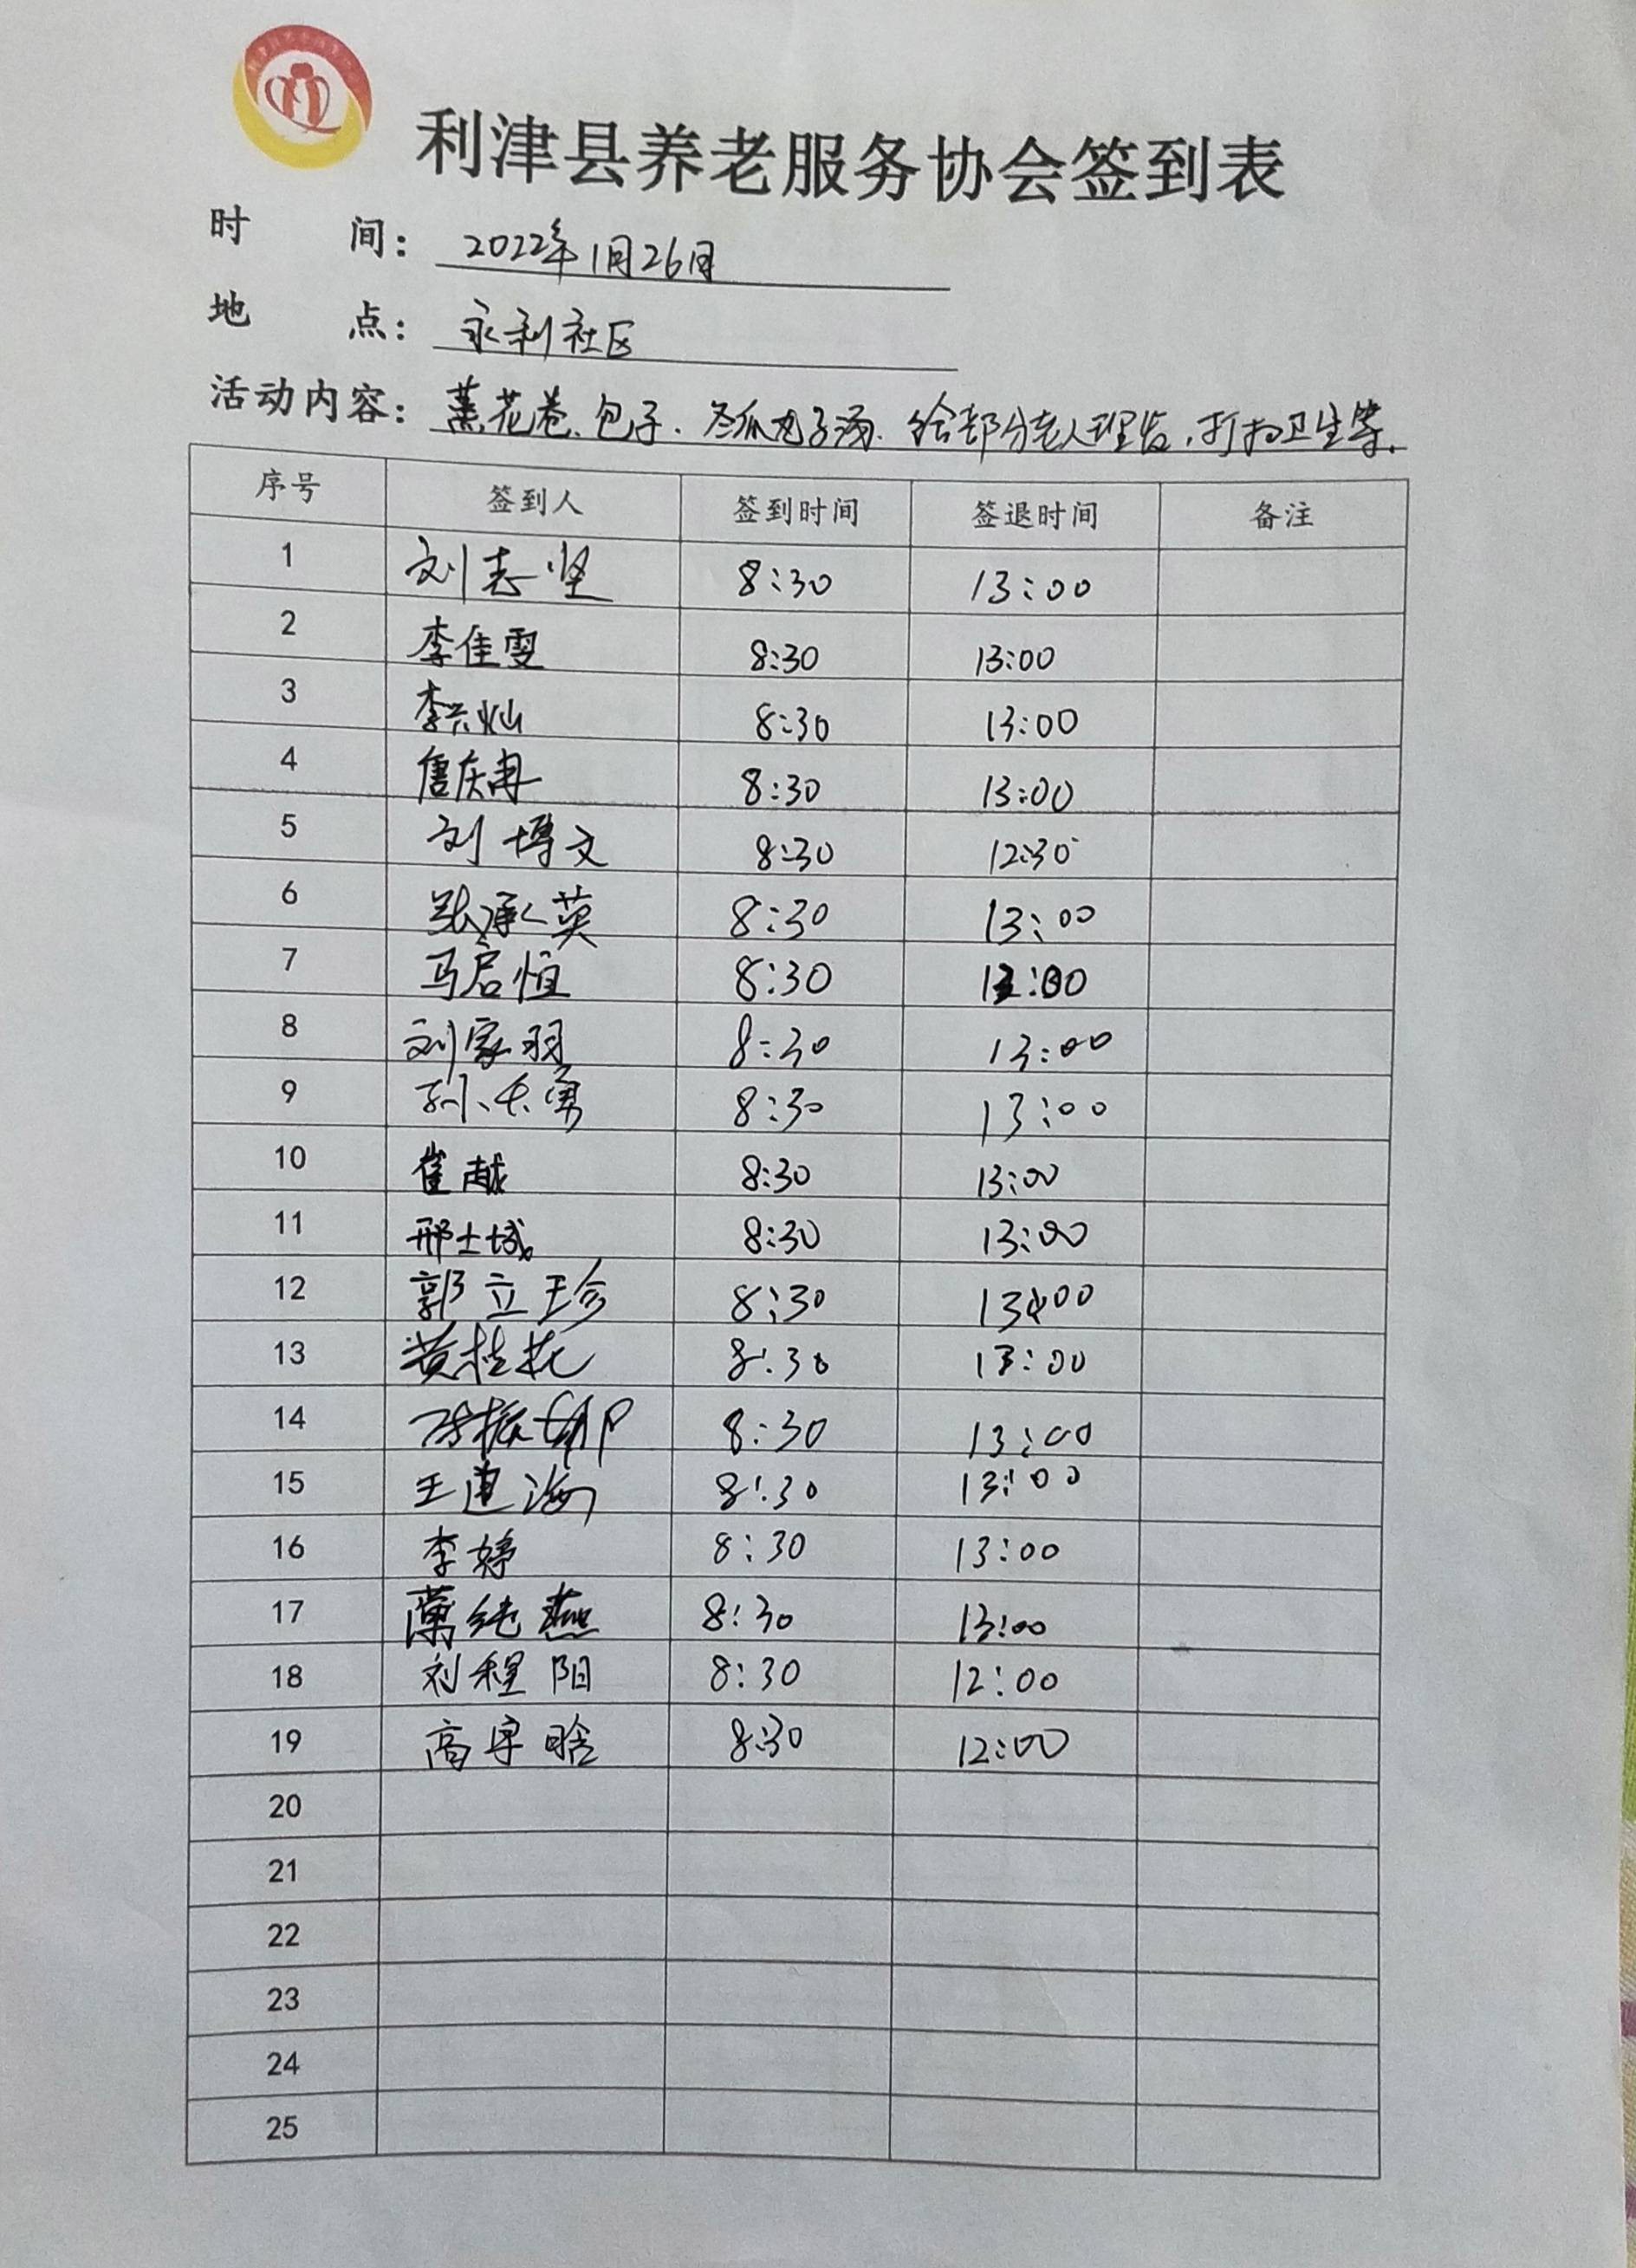 利津县养老服务协会签到表
时 间： 2022年1月26日
地 点： 永利社区
活动内容： 蒸花卷、包子、冬瓜丸子汤、给部分老人理发、打扫卫生等.
序号 签到人 签到时间 签退时间 备注
1 刘志坚 8:30 13:00
2 李佳雯 8:30 13:00
3 李兴灿 8:30 13:00
4 唐庆冉 8:30 13:00
5 刘博文 8:30 12:30
6 张承英 8:30 13:00
7 马启恒 8:30 13:00
8 刘家羽 8:30 13:00
9 孙长勇 8:30 13:00
10 崔越 8:30 13:00
11 邢士城 8:30 13:00
12 郭立珍 8:30 13:00
13 黄桂花 8:30 13:00
14 8:30 13:00
15 王建海 8:30 13:00
16 李婷 8:30 13:00
17 薄纯燕 8:30 13:00
18 刘程阳 8:30 12:00
19 高宇晗 8:30 12:00
20
21
22
23
24
25